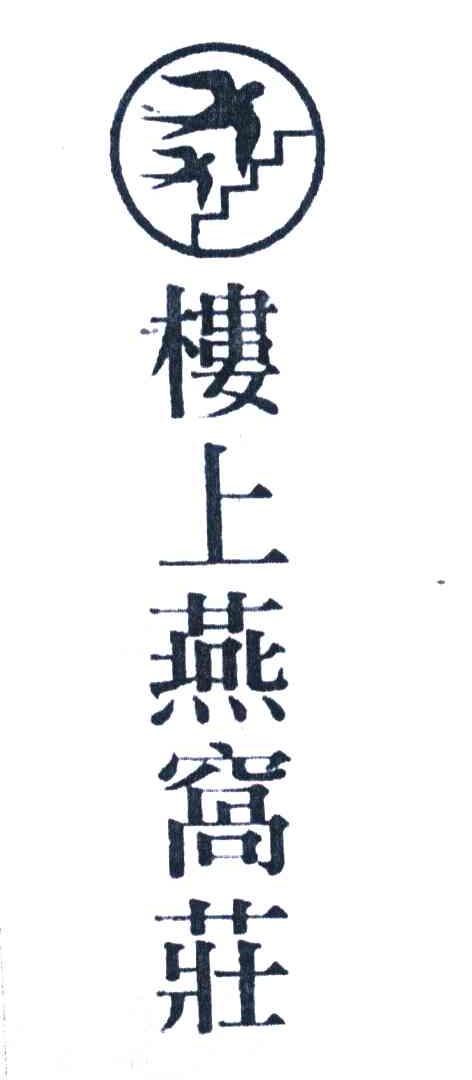 樓上燕窩莊